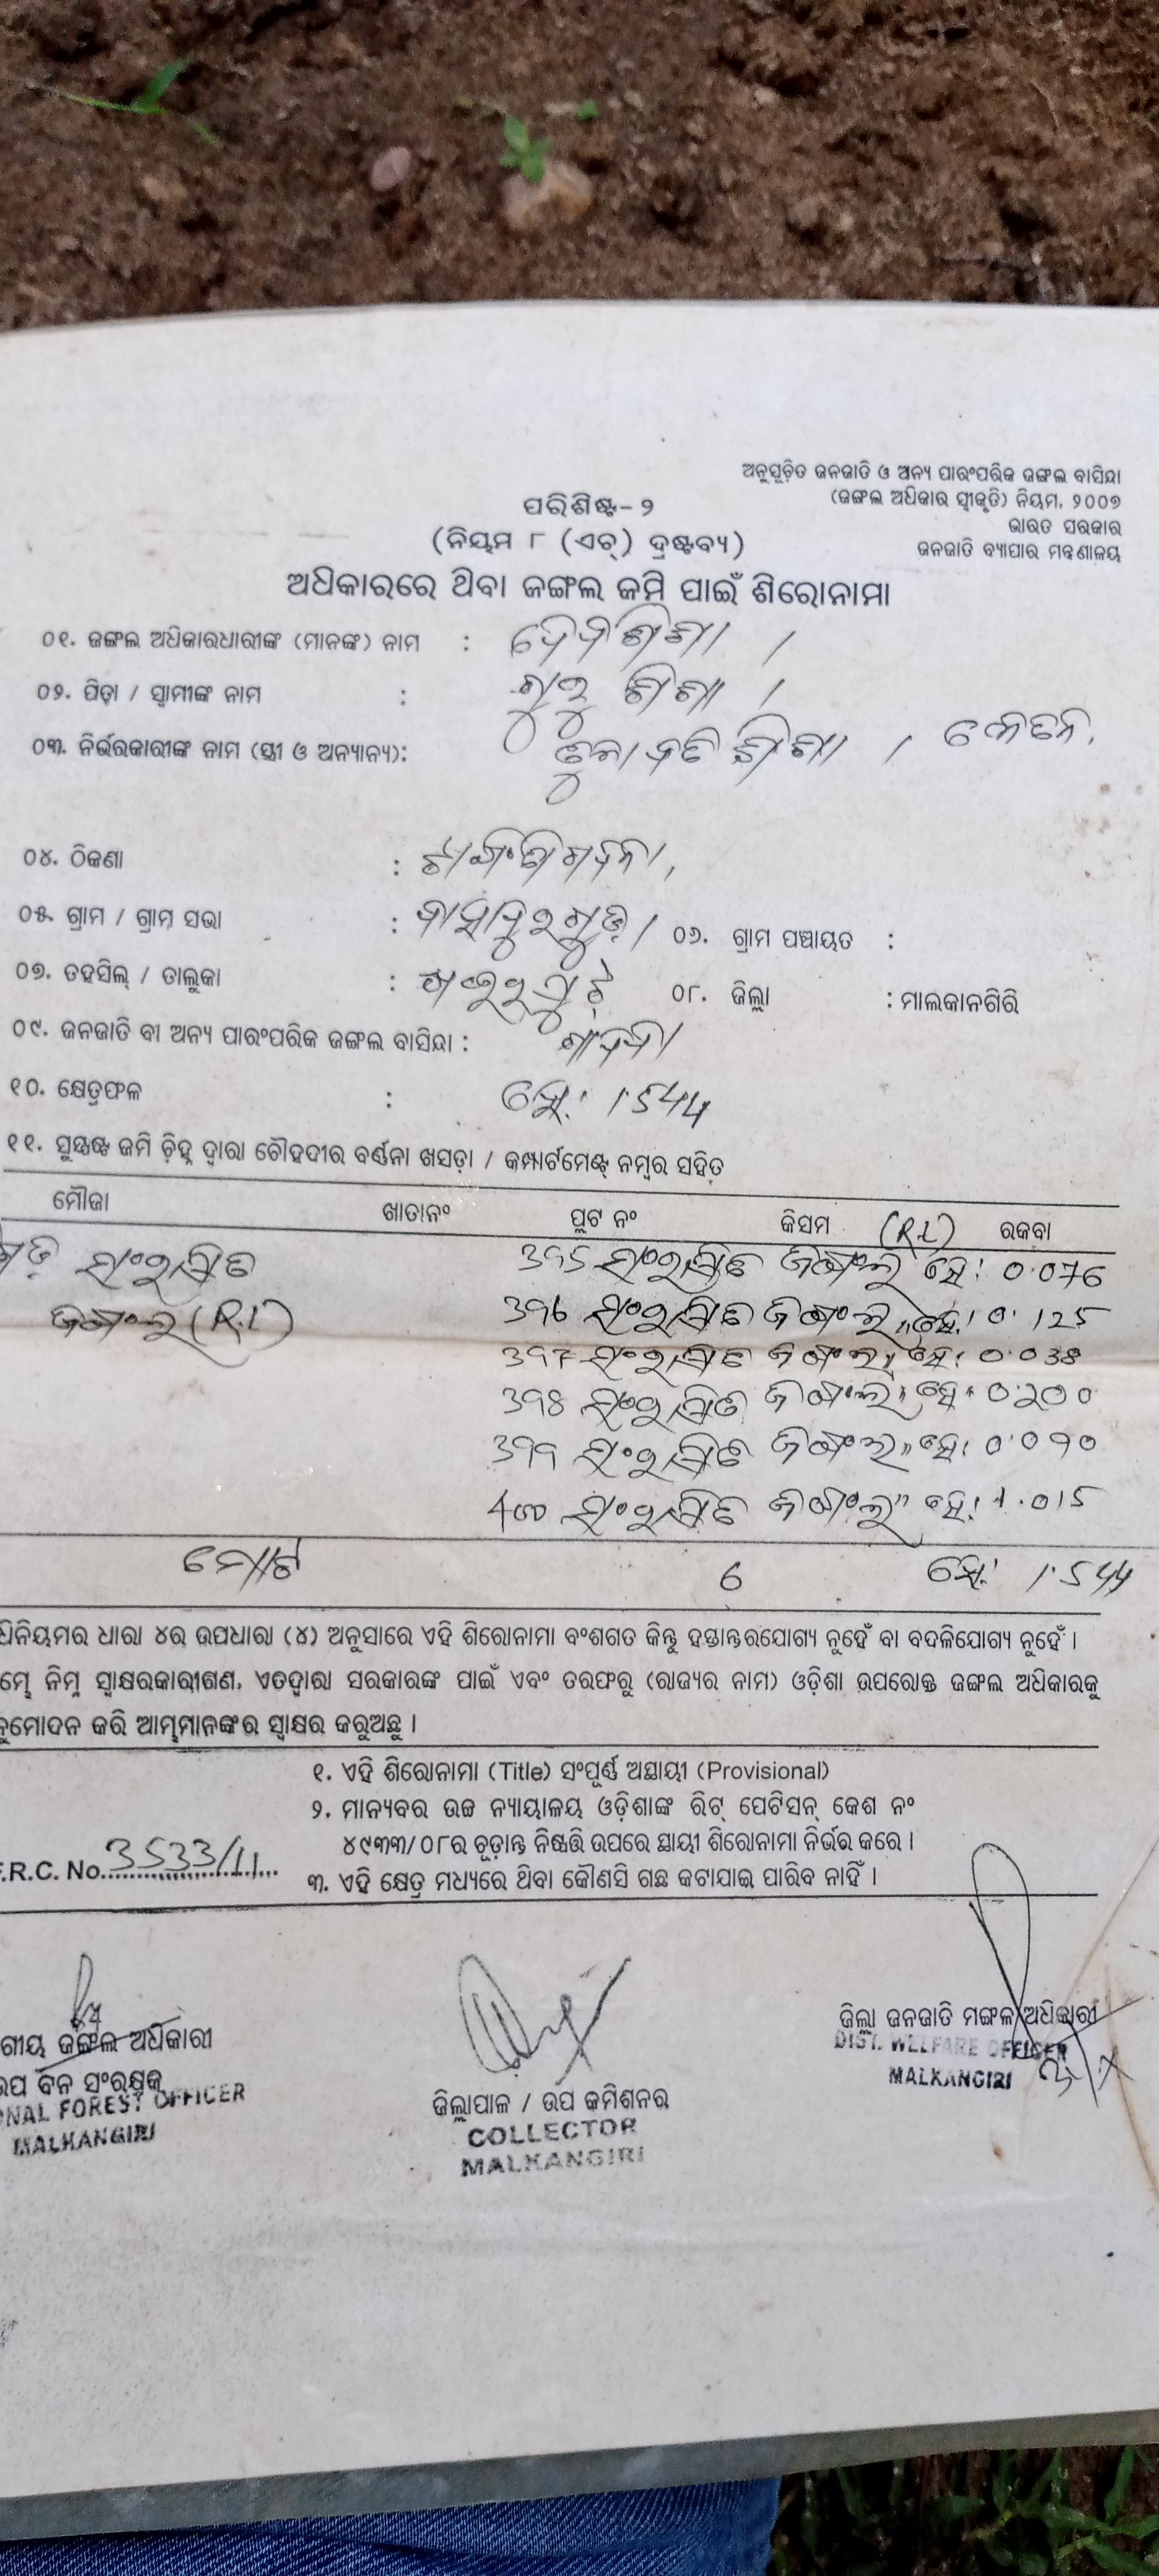 ଅନୁସୂଚିତ ଜନଜାତି ଓ ଅନ୍ୟ ପାରଂପରିକ ଜଙ୍ଗଲ ବାସିନ୍ଦା
(ଜଙ୍ଗଲ ଅଧିକାର ସ୍ୱୀକୃତି) ନିୟମ, ୨୦୦୭
ଭାରତ ସରକାର
ଜନଜାତି ବ୍ୟାପାର ମନ୍ତ୍ରଣାଳୟ
ପରିଶିଷ୍ଟ-୨
(ନିୟମ ୮ (ଏଚ୍) ଦ୍ରଷ୍ଟବ୍ୟ)
ଅଧିକାରରେ ଥିବା ଜଙ୍ଗଲ ଜମି ପାଇଁ ଶିରୋନାମା
୦୧. ଜଙ୍ଗଲ ଅଧିକାରଧାରୀଙ୍କ (ମାନଙ୍କ) ନାମ :
୦୨. ପିତା / ସ୍ୱାମୀଙ୍କ ନାମ :
୦୩. ନିର୍ଭରକାରୀଙ୍କ ନାମ (ସ୍ତ୍ରୀ ଓ ଅନ୍ୟାନ୍ୟ):
୦୪. ଠିକଣା :
୦୫. ଗ୍ରାମ / ଗ୍ରାମ ସଭା : ୦୬. ଗ୍ରାମ ପଞ୍ଚାୟତ :
୦୭. ତହସିଲ୍ / ତାଲୁକା : ୦୮. ଜିଲ୍ଲା : ମାଲକାନଗିରି
୦୯. ଜନଜାତି ବା ଅନ୍ୟ ପାରଂପରିକ ଜଙ୍ଗଲ ବାସିନ୍ଦା :
୧୦. କ୍ଷେତ୍ରଫଳ : ହେ: 1.544
୧୧. ସୁସ୍ପଷ୍ଟ ଜମି ଚିହ୍ନ ଦ୍ୱାରା ଚୌହଦୀର ବର୍ଣ୍ଣନା ଖସଡ଼ା / କମ୍ପାର୍ଟମେଣ୍ଟ୍ ନମ୍ବର ସହିତ
ମୌଜା ଖାତାନଂ ପ୍ଲଟ ନଂ କିସମ (R.L) ରକବା
ସଂରକ୍ଷିତ 395 ସଂରକ୍ଷିତ ଜଙ୍ଗଲ ହେ: 0.076
ଜଙ୍ଗଲ (R.L) 396 ସଂରକ୍ଷିତ ଜଙ୍ଗଲ " ହେ: 0.125
397 ସଂରକ୍ଷିତ ଜଙ୍ଗଲ " ହେ: 0.038
398 ସଂରକ୍ଷିତ ଜଙ୍ଗଲ " ହେ: 0.200
399 ସଂରକ୍ଷିତ ଜଙ୍ଗଲ " ହେ: 0.090
400 ସଂରକ୍ଷିତ ଜଙ୍ଗଲ " ହେ: 1.015
ମୋଟ 6 ହେ: 1.544
ଧିନିୟମର ଧାରା ୪ର ଉପଧାରା (୪) ଅନୁସାରେ ଏହି ଶିରୋନାମା ବଂଶଗତ କିନ୍ତୁ ହସ୍ତାନ୍ତରଯୋଗ୍ୟ ନୁହେଁ ବା ବଦଳିଯୋଗ୍ୟ ନୁହେଁ ।
ମ୍ଭେ ନିମ୍ନ ସ୍ୱାକ୍ଷରକାରୀଗଣ, ଏତଦ୍ୱାରା ସରକାରଙ୍କ ପାଇଁ ଏବଂ ତରଫରୁ (ରାଜ୍ୟର ନାମ) ଓଡ଼ିଶା ଉପରୋକ୍ତ ଜଙ୍ଗଲ ଅଧିକାରକୁ
ନୁମୋଦନ କରି ଆମ୍ଭମାନଙ୍କର ସ୍ୱାକ୍ଷର କରୁଅଛୁ ।
୧. ଏହି ଶିରୋନାମା (Title) ସଂପୂର୍ଣ୍ଣ ଅସ୍ଥାୟୀ (Provisional)
୨. ମାନ୍ୟବର ଉଚ୍ଚ ନ୍ୟାୟାଳୟ ଓଡ଼ିଶାଙ୍କ ରିଟ୍ ପେଟିସନ୍ କେଶ ନଂ
୪୯୩୩/୦୮ର ଚୂଡ଼ାନ୍ତ ନିଷ୍ପତ୍ତି ଉପରେ ସ୍ଥାୟୀ ଶିରୋନାମା ନିର୍ଭର କରେ ।
F.R.C. No. 3533/11
୩. ଏହି କ୍ଷେତ୍ର ମଧ୍ୟରେ ଥିବା କୌଣସି ଗଛ କଟାଯାଇ ପାରିବ ନାହିଁ ।
ଗୀୟ ଜଙ୍ଗଲ ଅଧିକାରୀ
ଉପ ବନ ସଂରକ୍ଷକ
ONAL FOREST OFFICER
MALKANGIRI
ଜିଲ୍ଲାପାଳ / ଉପ କମିଶନର
COLLECTOR
MALKANGIRI
ଜିଲ୍ଲା ଜନଜାତି ମଙ୍ଗଳ ଅଧିକାରୀ
DIST. WELFARE OFFICER
MALKANGIRI